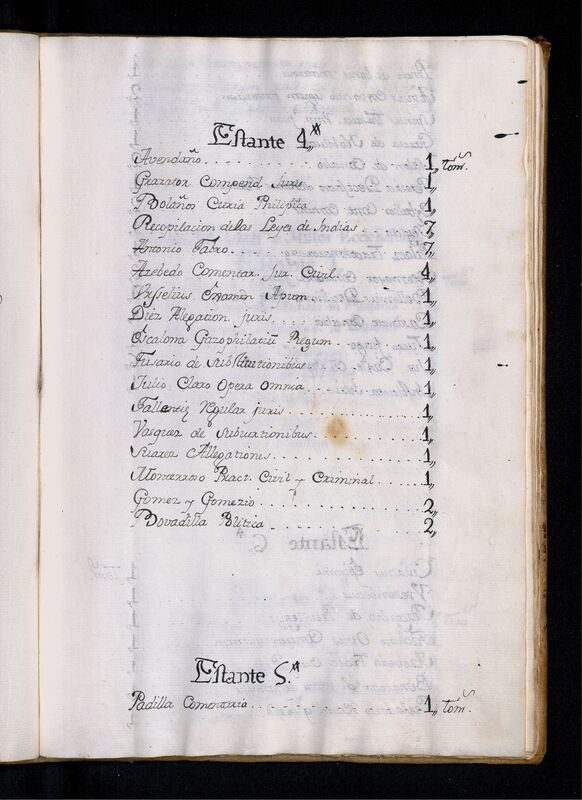 Estante 4,,º
Avendaño . . . . . . . . . . . . . . . 1,, tomˢ
Graxator Compend. Juxis . . . . 1,,
Bolaños Curia Philipica . . . . 1,,
Recopilacion de las Leyes de Indias . . 7,,
Antonio Fabro . . . . . . . . . . . 7,,
Azebedo Comentar. Jur. Civil . . . 4,,
Examin Apum . . . . 1,,
Diez Alegation. juxis . . . . . . 1,,
Escalona Gazophilatiū Regum . . . 1,,
Fusario de Substitutionibus . . . . 1,,
Julio Claro Opera Omnia . . . . . 1,,
Fallencis Regular juxis . . . . . . 1,,
Vasquez de . . . . 1,,
Suarez Allegationes . . . . . . . . 1,,
Monterroso Pract. Civil y Criminal . . . . 1,,
Gomez y Gomezio . . . . . . . . . . 2,,
Bovadilla Politica . . . . . . . . . 2,,
Estante 5.º
Padilla Comentario . . . . . . . . . 1,, tomˢ